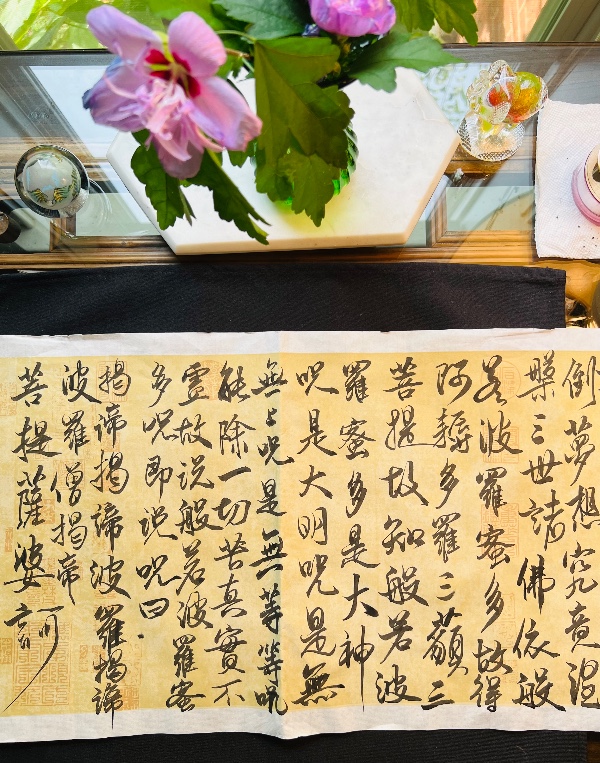 倒夢想究竟涅
槃三世諸佛依般
若波羅蜜多故得
阿耨多羅三藐三
菩提故知般若波
羅蜜多是大神
呪是大明呪是無
無上呪是無等等呪
能除一切苦真實不
虛故說般若波羅蜜
多呪即說呪曰
揭帝揭諦波羅揭諦
波羅僧揭帝
菩提薩婆訶